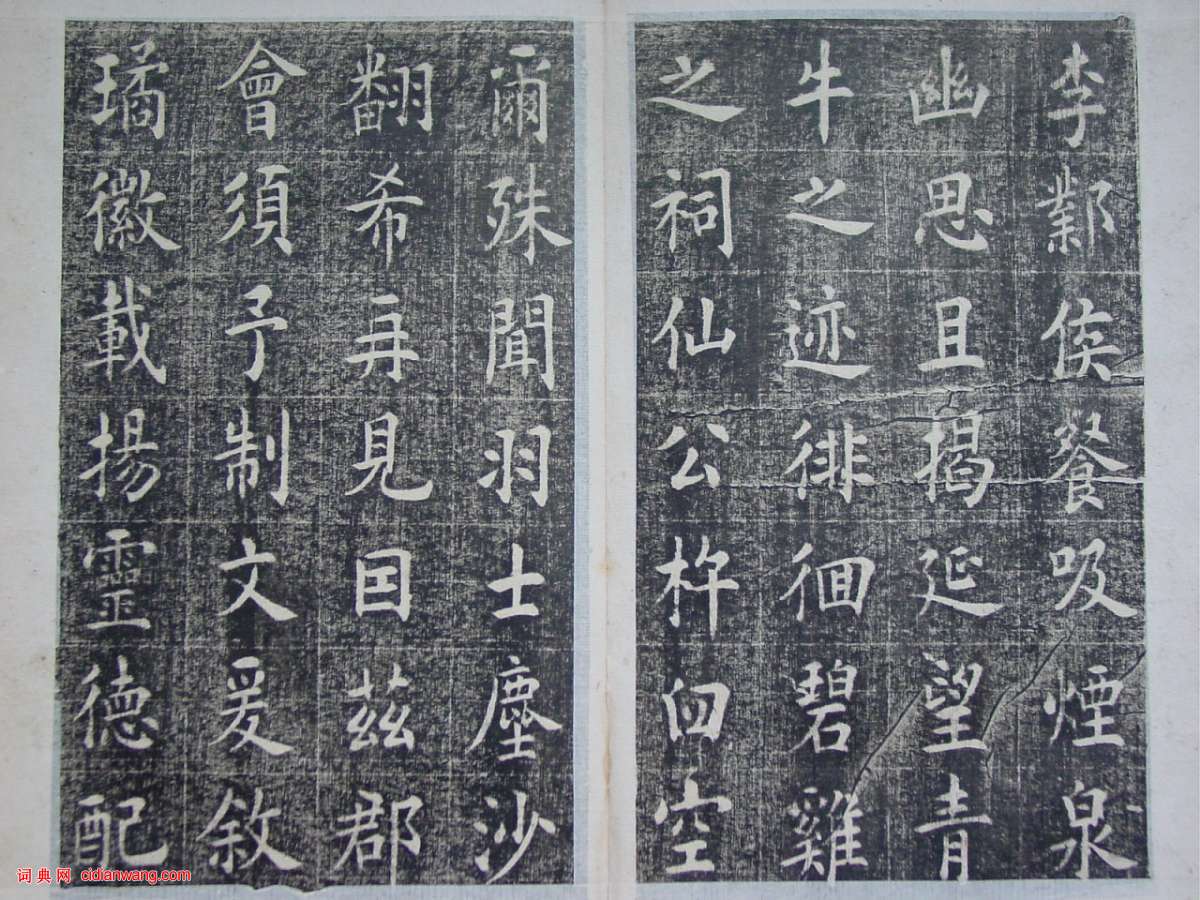 李鄴侯餐吸煙泉
幽思且揭延望青
牛之迹徘徊碧雞
之祠仙公杵臼空
爾殊聞羽士塵沙
翻希再見囙茲郡
會須予制文爰敘
璚徽載揚靈德配
词典网 cidianwang.com